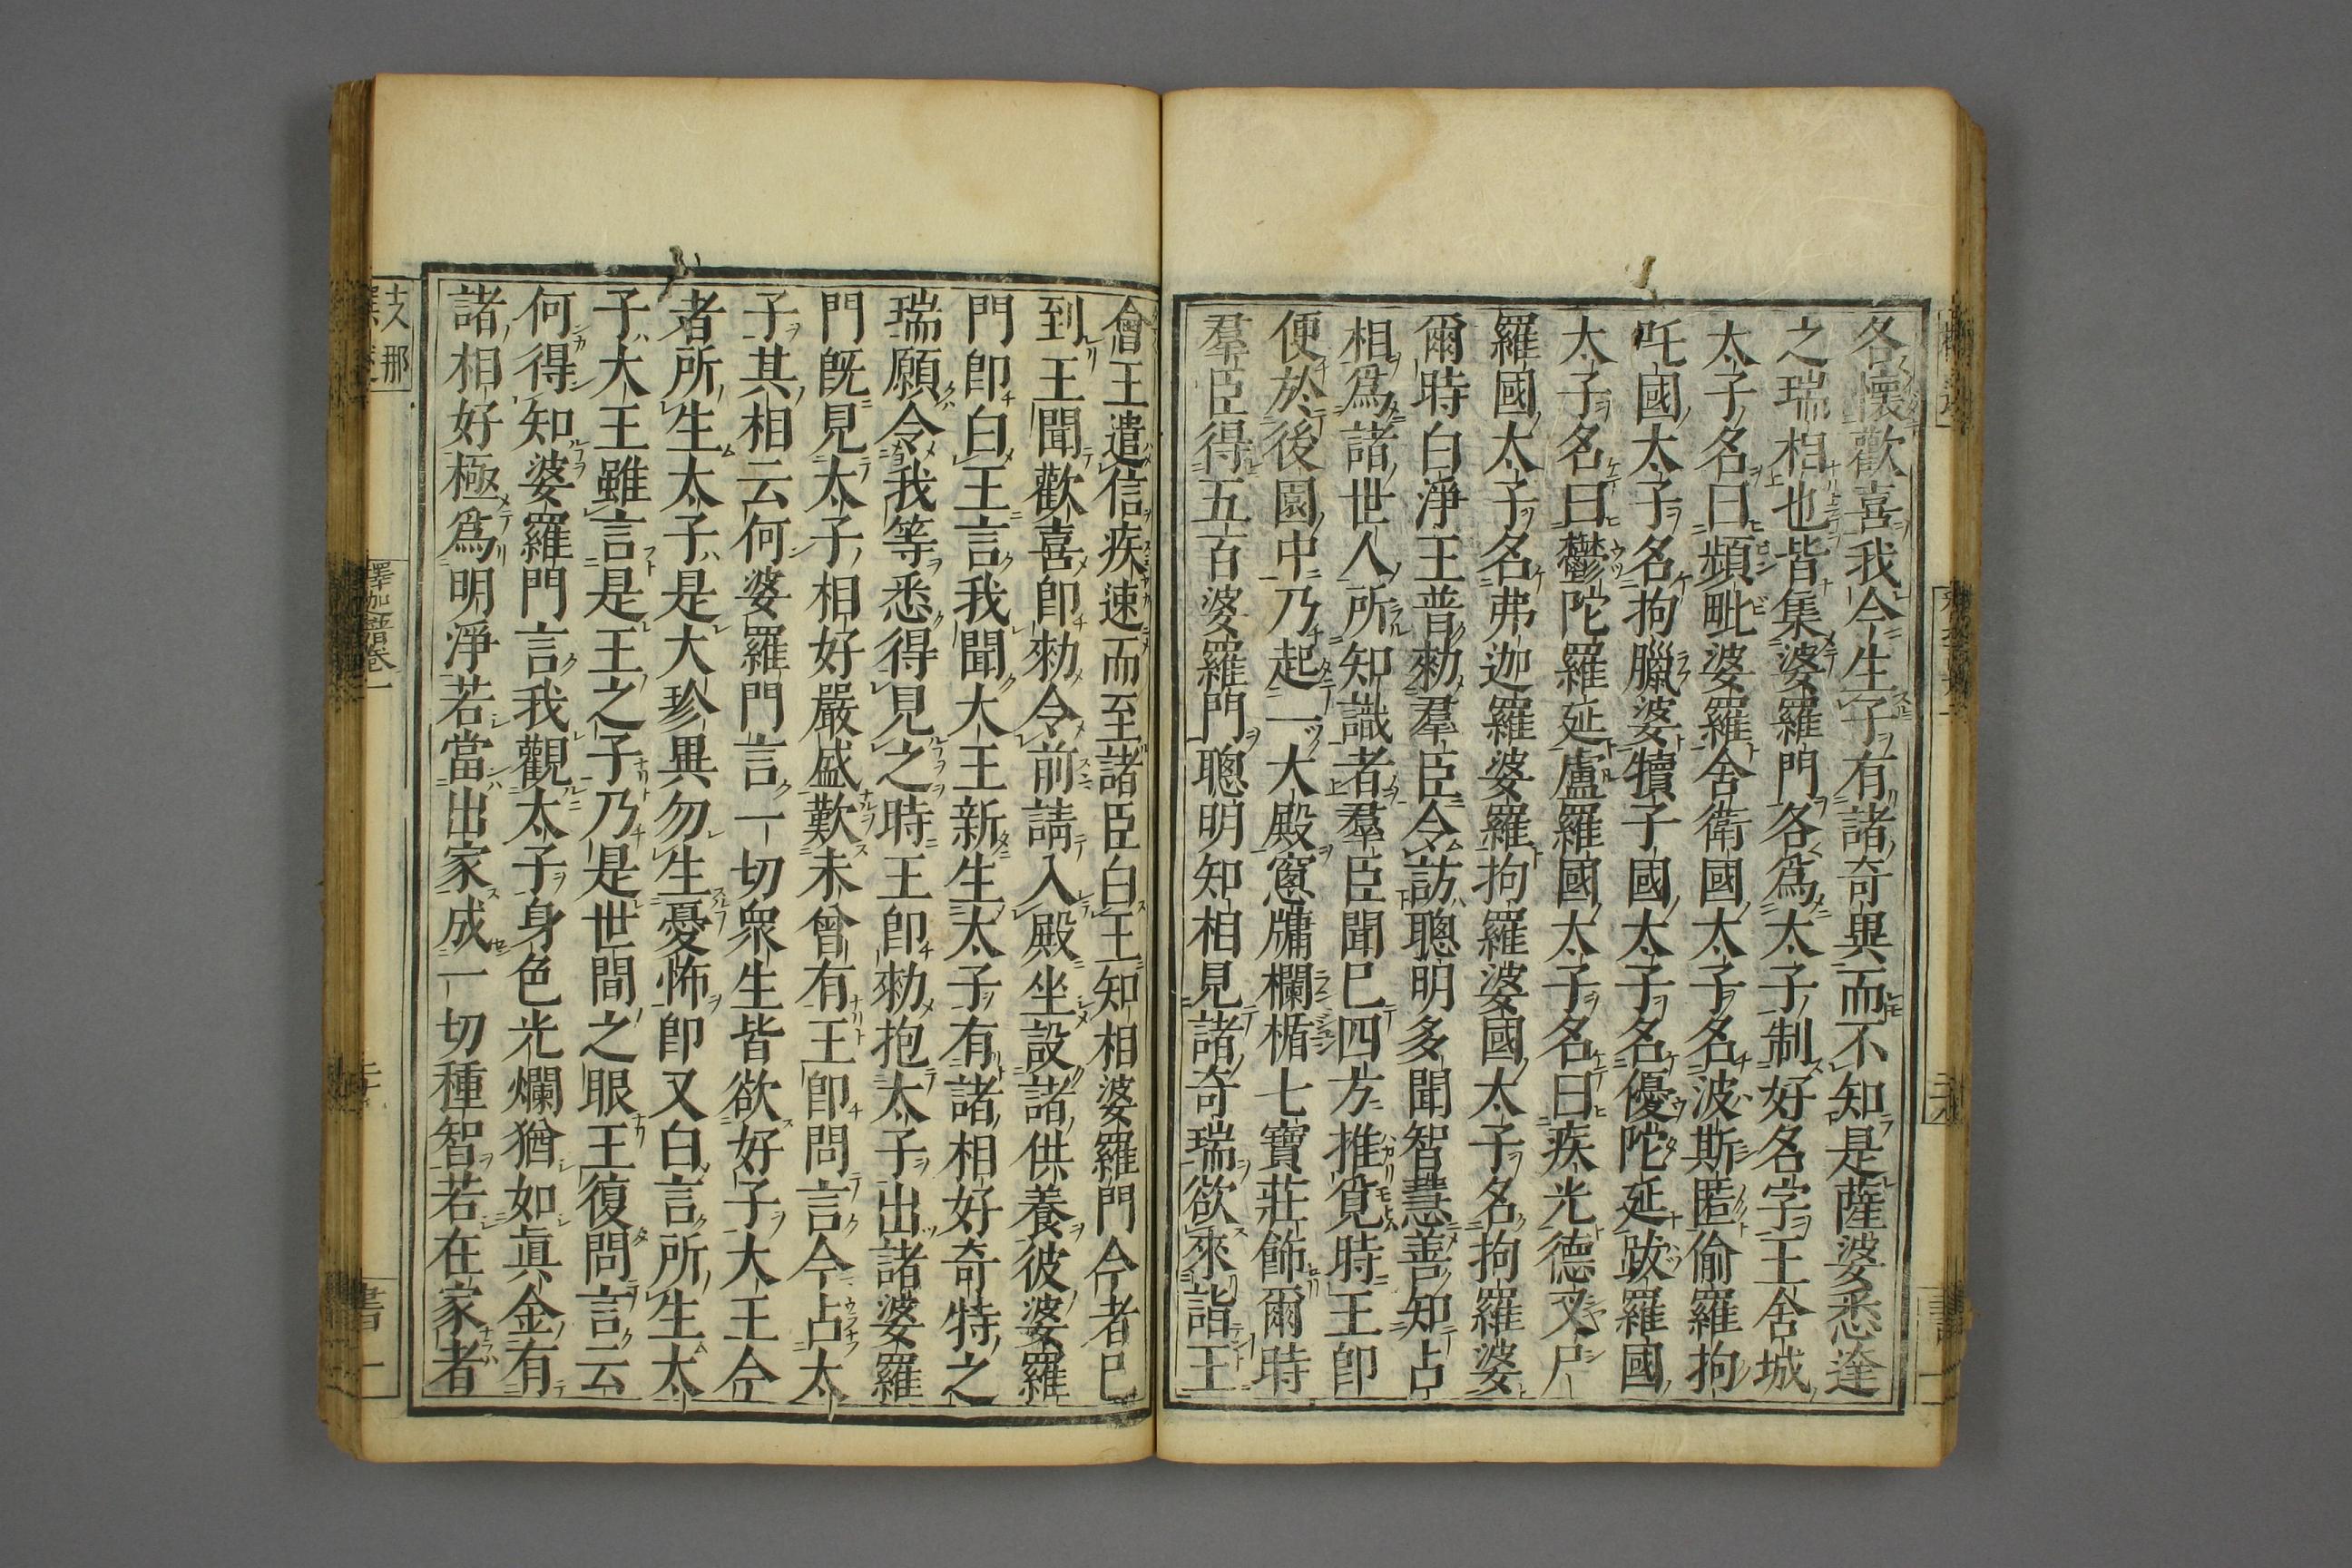 各懷歡喜我今生子有諸奇異而不知是薩婆悉達
之瑞相也皆集婆羅門各爲太子制好名字王舍城
太子名曰頻毗婆羅舍衛國太子名波斯匿偷羅拘
吒國太子名拘臘婆犢子國太子名優陀延跋羅國
太子名曰鬱陀羅延盧羅國太子名曰疾光德叉尸
羅國太子名弗迦羅婆羅拘羅婆國太子名拘羅婆
爾時白淨王普勅羣臣令訪聰明多聞智慧善知占
相爲諸世人所知識者羣臣聞已四方推覓時王卽
便於後園中乃起一大殿窻牗欄楯七寶莊飾爾時
羣臣得五百婆羅門聰明知相見諸奇瑞欲來詣王
會王遣信疾速而至諸臣白王知相婆羅門今者已
到王聞歡喜卽勅令前請入殿坐設諸供養彼婆羅
門卽白王言我聞大王新生太子有諸相好奇特之
瑞願令我等悉得見之時王卽勅抱太子出諸婆羅
門旣見太子相好嚴盛歎未曾有王卽問言今占太
子其相云何婆羅門言一切衆生皆欲好子大王今
者所生太子是大珍異勿生憂怖卽又白言所生太
子大王雖言是王之子乃是世間之眼王復問言云
何得知婆羅門言我觀太子身色光爛猶如眞金有
諸相好極爲明淨若當出家成一切種智若在家者
支那
釋迦譜卷一